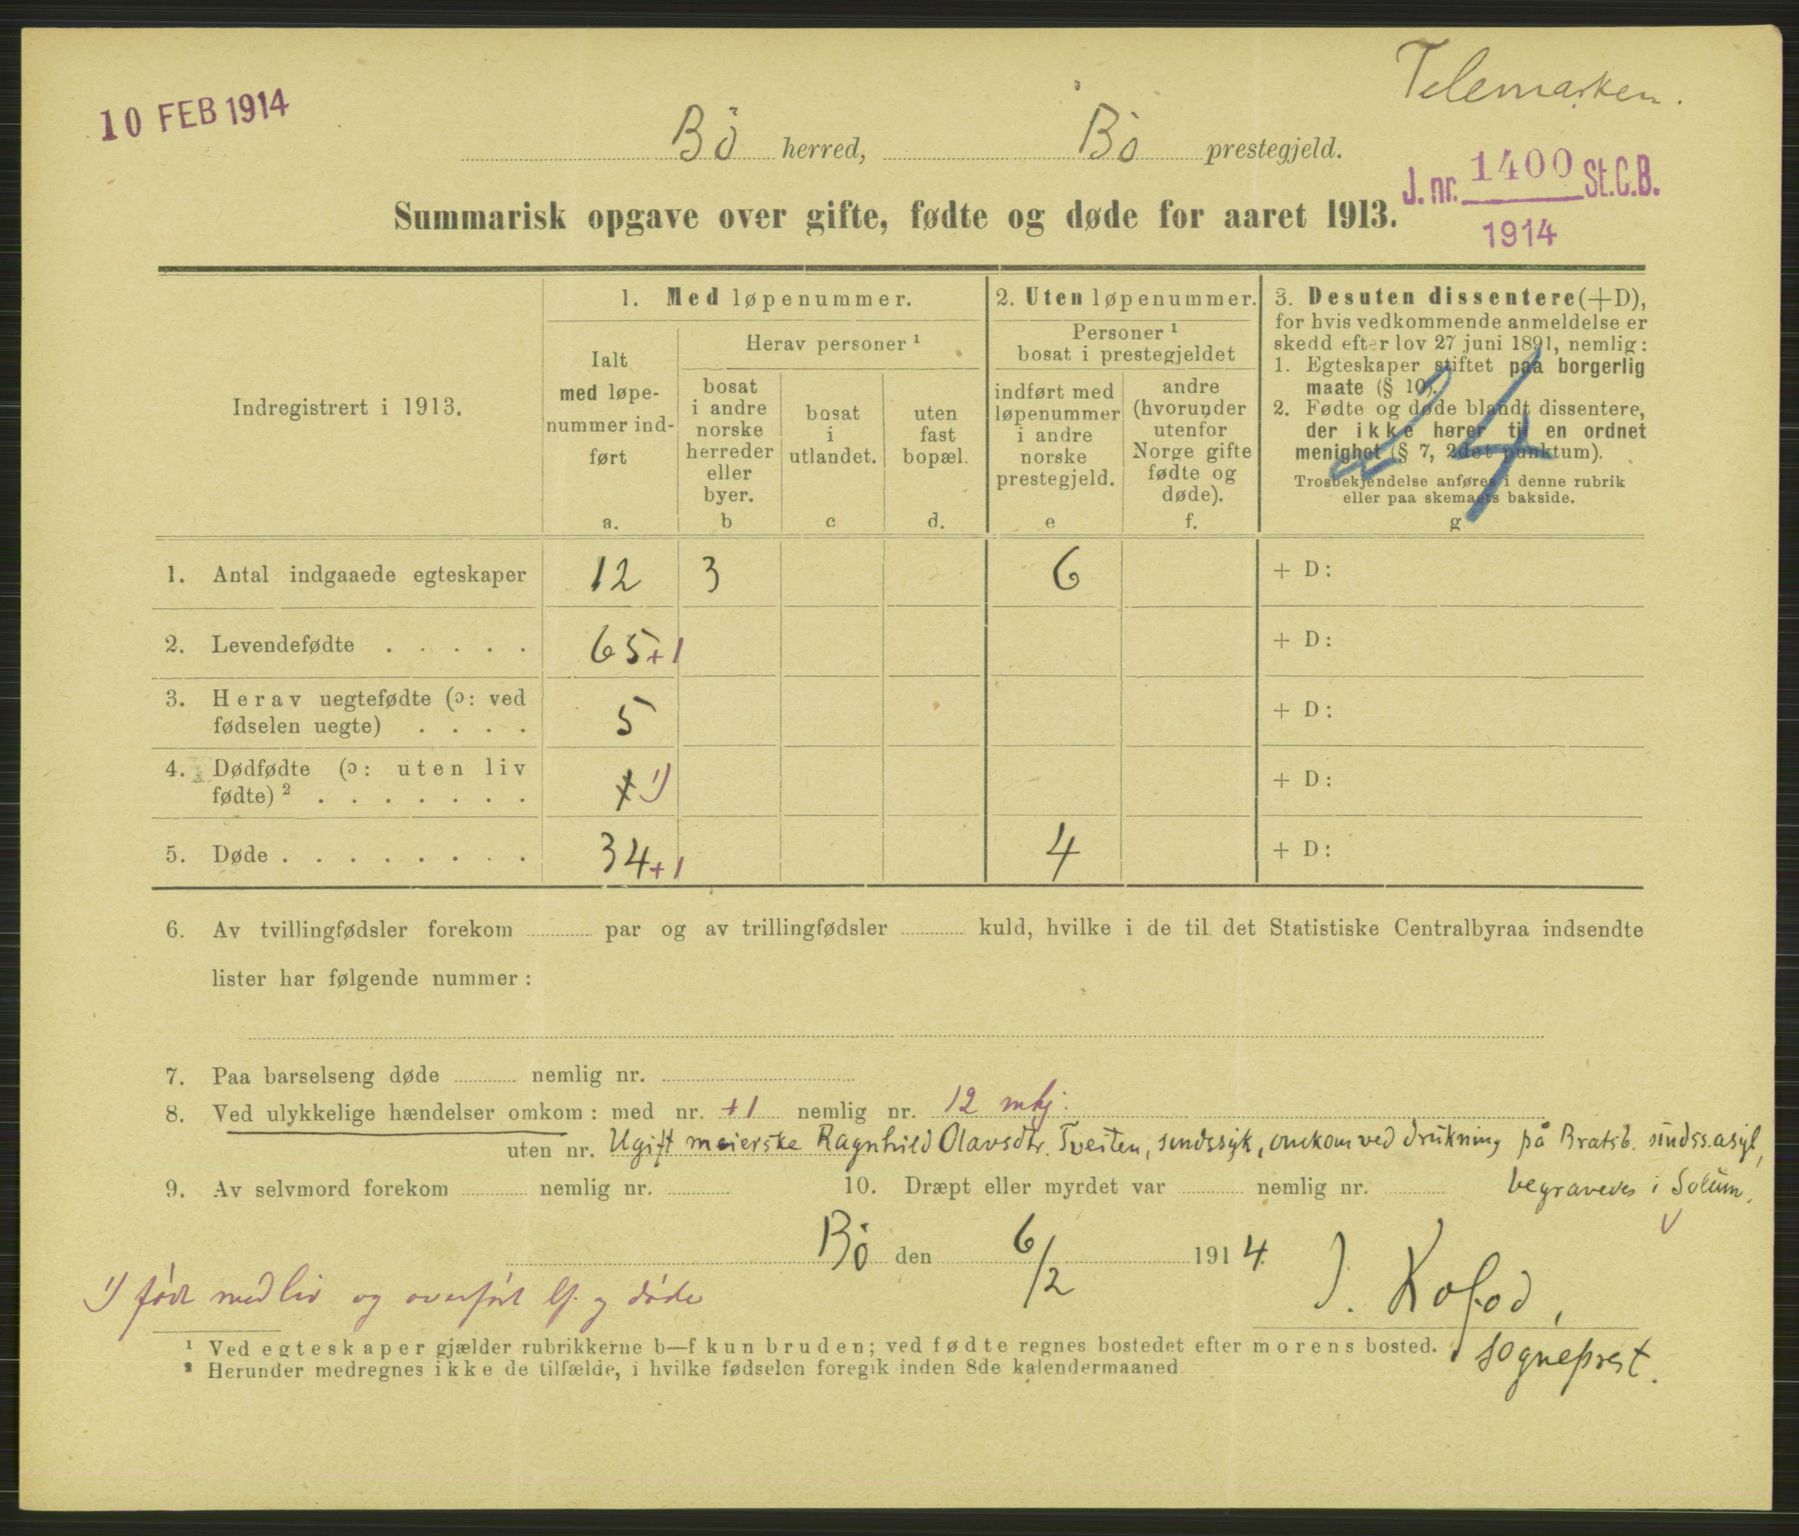 Telemarken.
10 FEB 1914
Bö herred, Bö prestegjeld.
J. nr. 1400 St.C.B.
1914
Summarisk opgave over gifte, fødte og døde for aaret 1913.
Indregistrert i 1913.
1. Med løpenummer.
Ialt
med løpe-
nummer ind-
ført
a.
Herav personer ¹
bosat
i andre
norske
herreder
eller
byer.
b
bosat
i
utlandet.
c
uten
fast
bopæl.
d.
2. Uten løpenummer.
Personer ¹
bosat i prestegjeldet
indført med
løpenummer
i andre
norske
prestegjeld.
e
andre
(hvorunder
utenfor
Norge gifte
fødte og
døde).
f.
3. Desuten dissentere (+D),
for hvis vedkommende anmeldelse er
skedd efter lov 27 juni 1891, nemlig:
1. Egteskaper stiftet paa borgerlig
maate (§ 10).
2. Fødte og døde blandt dissentere,
der ikke hører til en ordnet
menighet (§ 7, 2det punktum).
Trosbekjendelse anføres i denne rubrik
eller paa skemaets bakside.
g
24
1. Antal indgaaede egteskaper 12 3 6 + D:
2. Levendefødte . . . . . 65 +1 + D:
3. Herav uegtefødte (ɔ: ved
fødselen uegte) . . . . 5 + D:
4. Dødfødte (ɔ: uten liv
fødte) ² . . . . . . . 1 ¹) + D:
5. Døde . . . . . . . . 34 +1 4 + D:
6. Av tvillingfødsler forekom par og av trillingfødsler kuld, hvilke i de til det Statistiske Centralbyraa indsendte
lister har følgende nummer:
7. Paa barselseng døde nemlig nr.
8. Ved ulykkelige hændelser omkom: med nr. +1 nemlig nr. 12 mkj:
uten nr. Ugift meierske Ragnhild Olavsdtr. Tveiten, sindssyk, omkom ved drukning på Bratsb. sindss.asyl,
9. Av selvmord forekom nemlig nr. 10. Dræpt eller myrdet var nemlig nr. begravedes i Solum.
Bö den 6/2 1914.
J. Kofod,
sogneprest.
¹) født med liv og overført lf. og døde
¹ Ved egteskaper gjælder rubrikkerne b—f kun bruden; ved fødte regnes bostedet efter morens bosted.
² Herunder medregnes ikke de tilfælde, i hvilke fødselen foregik inden 8de kalendermaaned